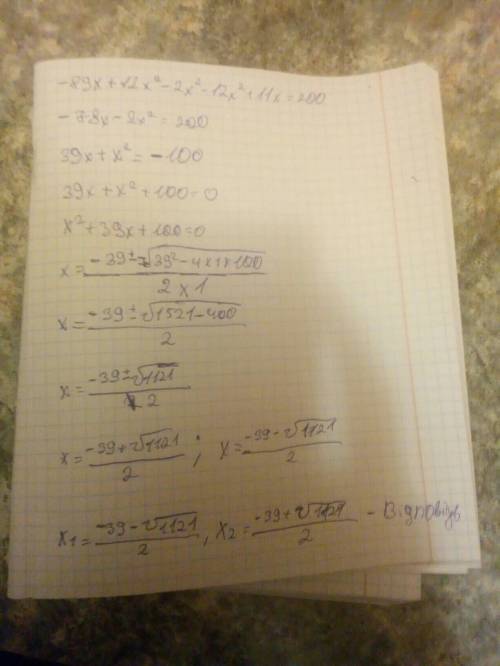 -89x+12x²-2x²-12x²+11x=200
-78x-2x²=200
39x+x²=-100
39x+x²+100=0
x²+39x+100=0
x=\frac{-39±\sqrt{39²-4×1×100}}{2×1}
x=\frac{-39±\sqrt{1521-400}}{2}
x=\frac{-39±\sqrt{1121}}{2}
x=\frac{-39+\sqrt{1121}}{2}; x=\frac{-39-\sqrt{1121}}{2}
x₁=\frac{-39-\sqrt{1121}}{2}, x₂=\frac{-39+\sqrt{1121}}{2} - Відповідь